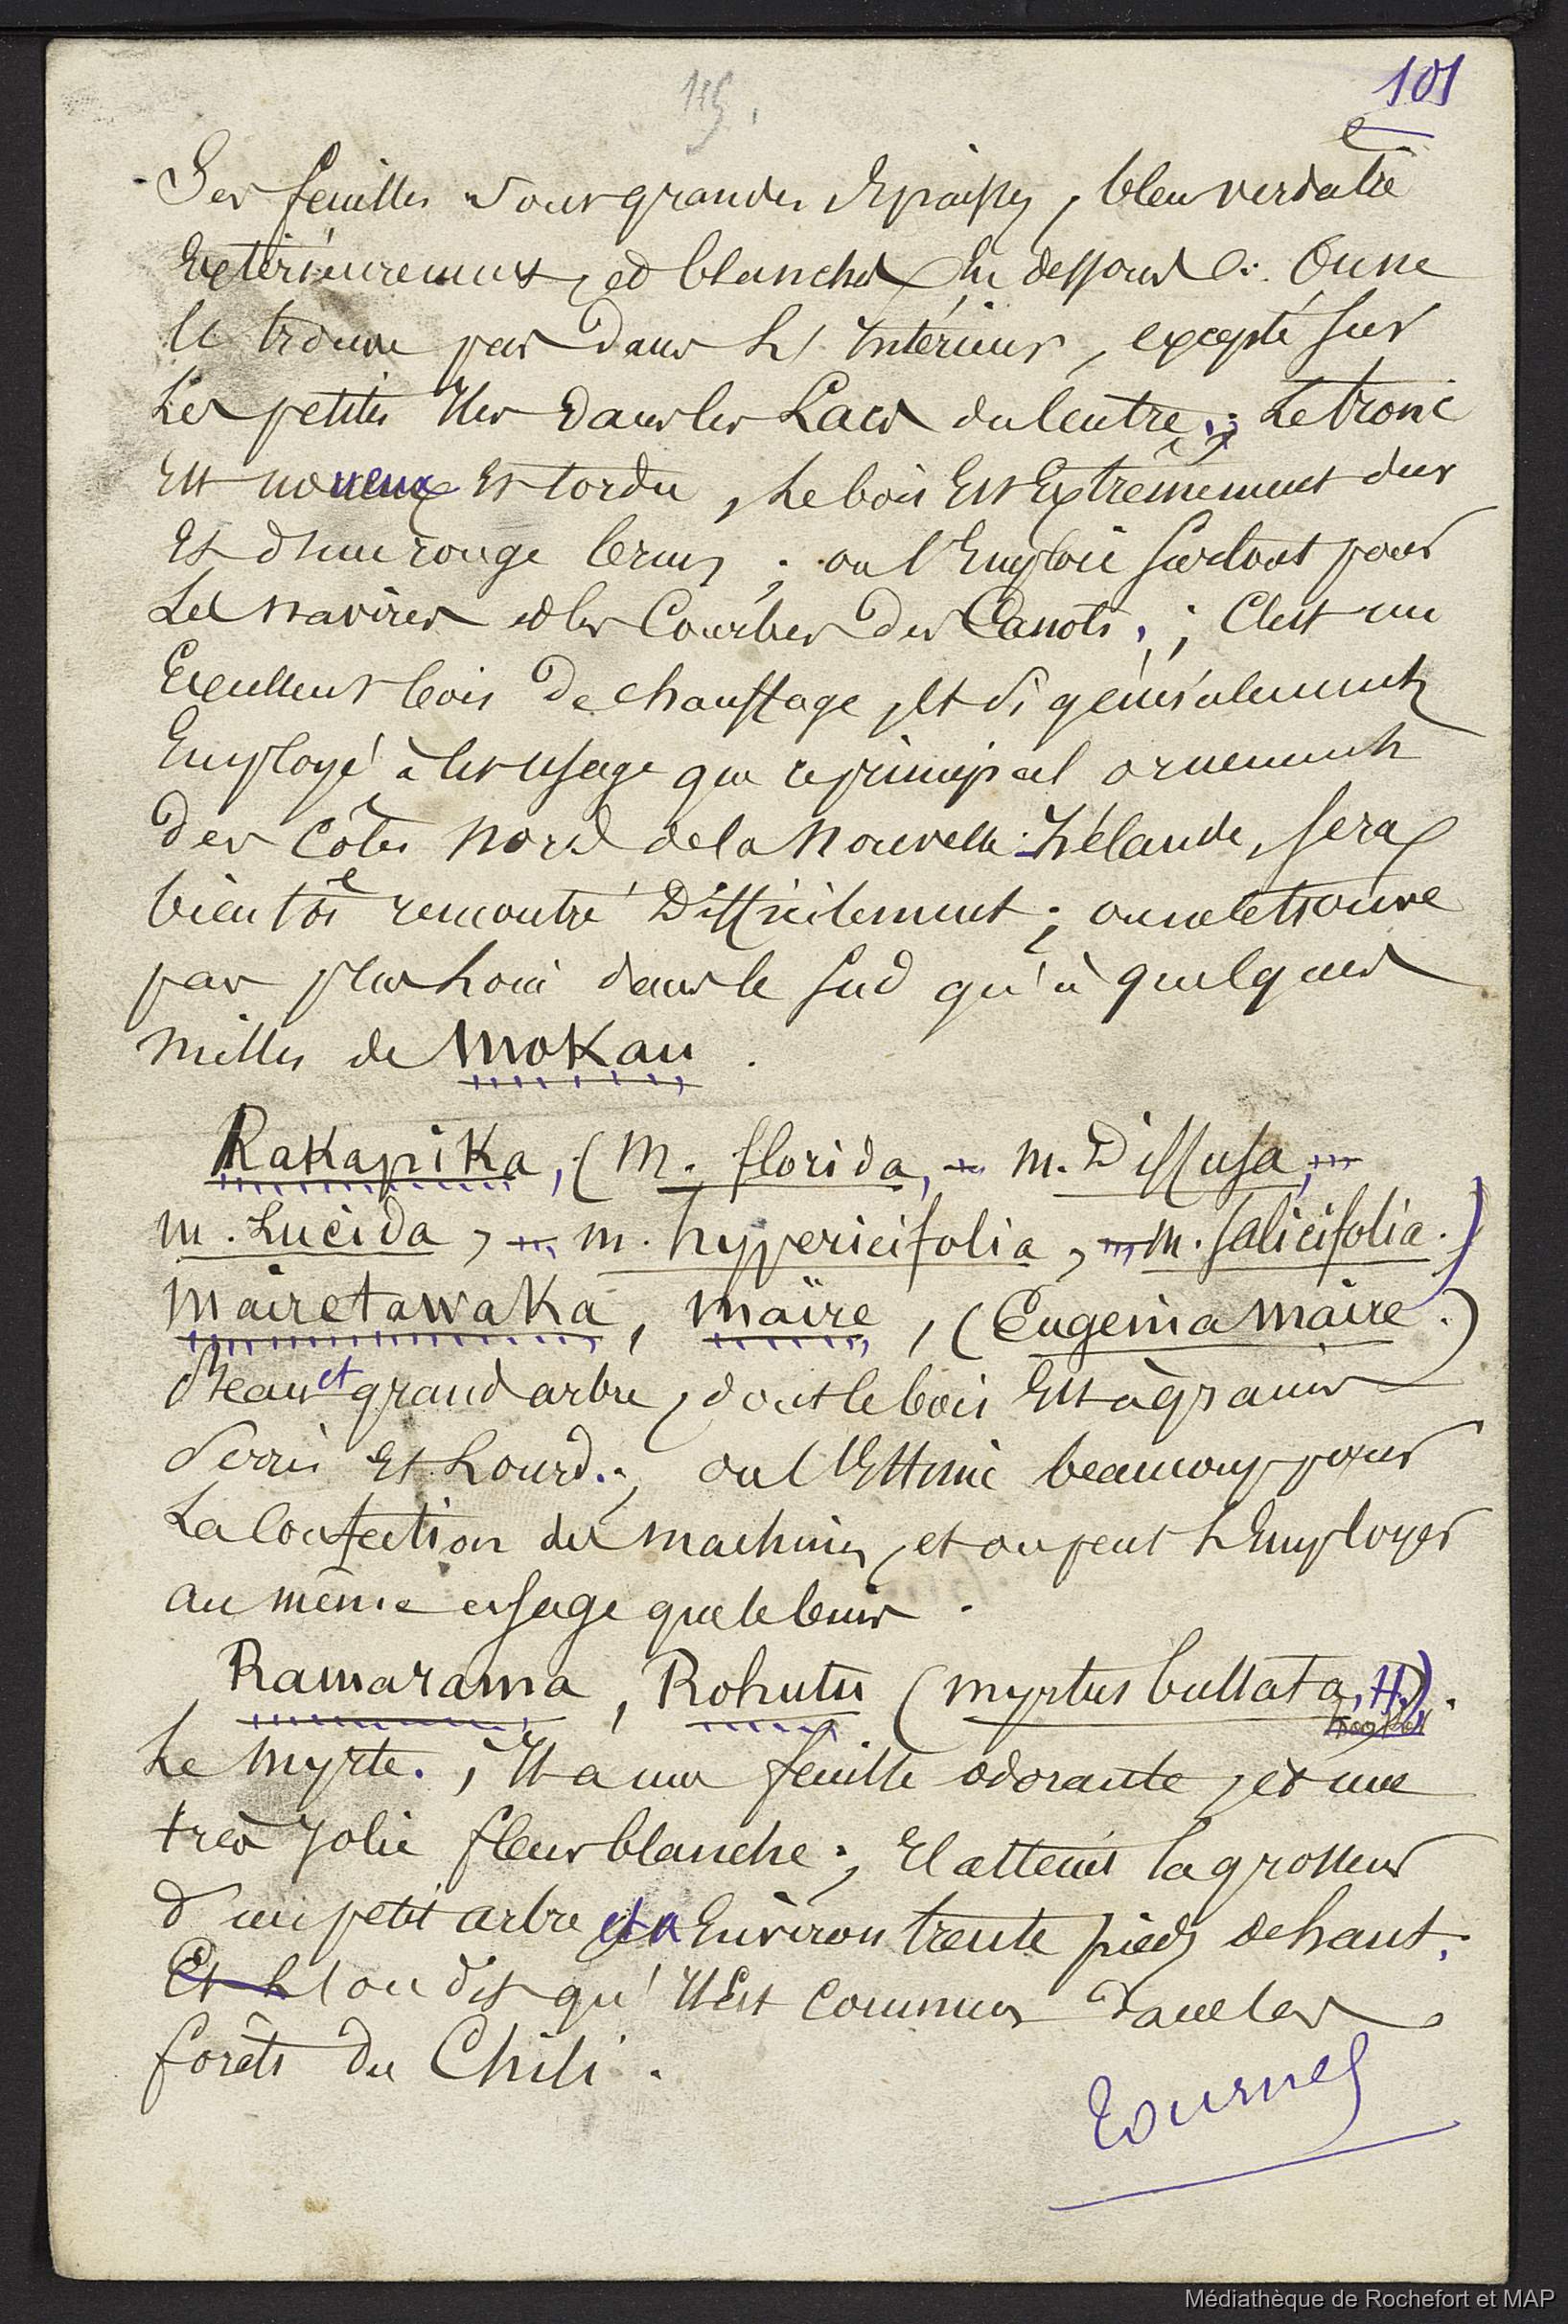 115.
101
Ses feuilles sont grandes épaisses, bleu verdatre
Extérieurement, et blanches En dessous. On ne
le trouve pas dans L'Intérieur, excepté sur
Les petites Iles dans les Lacs du Centre; Le tronc
Est noueux Et tordu, Le bois Est Extrêmement dur
Et d'un rouge brun; on l'Emploie surtout pour
Les navires et les Courbes des Canots; C'est un
Excellent bois de chauffage, Et si généralement
Employé à cet usage que ce principal ornement
des Côtes Nord de la Nouvelle-Zélande, sera
bientôt rencontré Difficilement; on ne le trouve
pas plus Loin dans le Sud qu'à quelques
milles de Mokau.
Rakapika, (M. florida, - M. Diffusa, -
M. Lucida, - M. hypericifolia, - M. Salicifolia.)
Mairetawaka, Maïre, (Eugenia Maire.)
Beau et grand arbre, dont le bois Est à grains
Serrés Et Lourd; on l'Estime beaucoup pour
La Confection des machines, et on peut L'Employer
au même usage que le buis.
Ramarama, Rohutu (Myrtus bullata, H.).
Hooker
Le Myrte; Il a une feuille odorante, et une
très Jolie fleur blanche; Il atteint la grosseur
d'un petit arbre et a Environ trente pieds de haut.
Et L'on dit qu'Il Est Commun dans les
forêts du Chili.
Tournez
Médiathèque de Rochefort et MAP